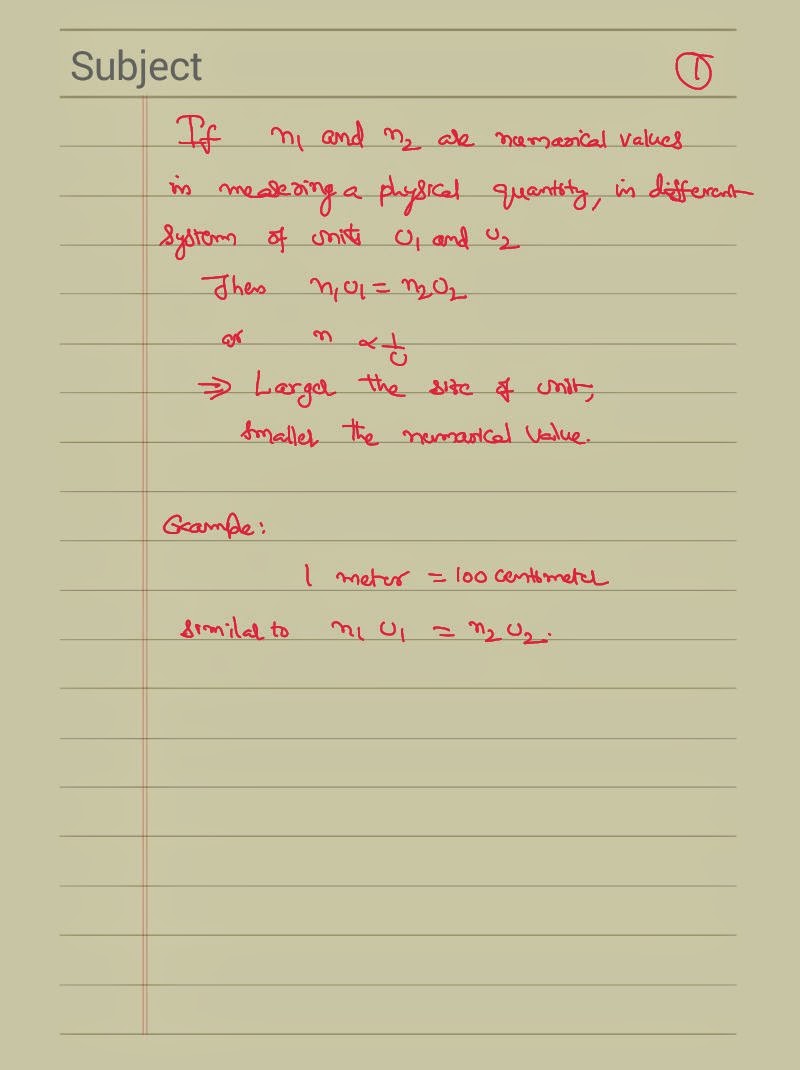 Subject
①
If n₁ and n₂ are numarical values
in measering a physical quantity, in different
system of units U₁ and U₂
Then n₁U₁ = n₂U₂
or n ∝ 1/U
⇒ Larger the size of unit,
smaller the numarical value.
Example:
1 meter = 100 centimeter
similar to n₁ U₁ = n₂ U₂.